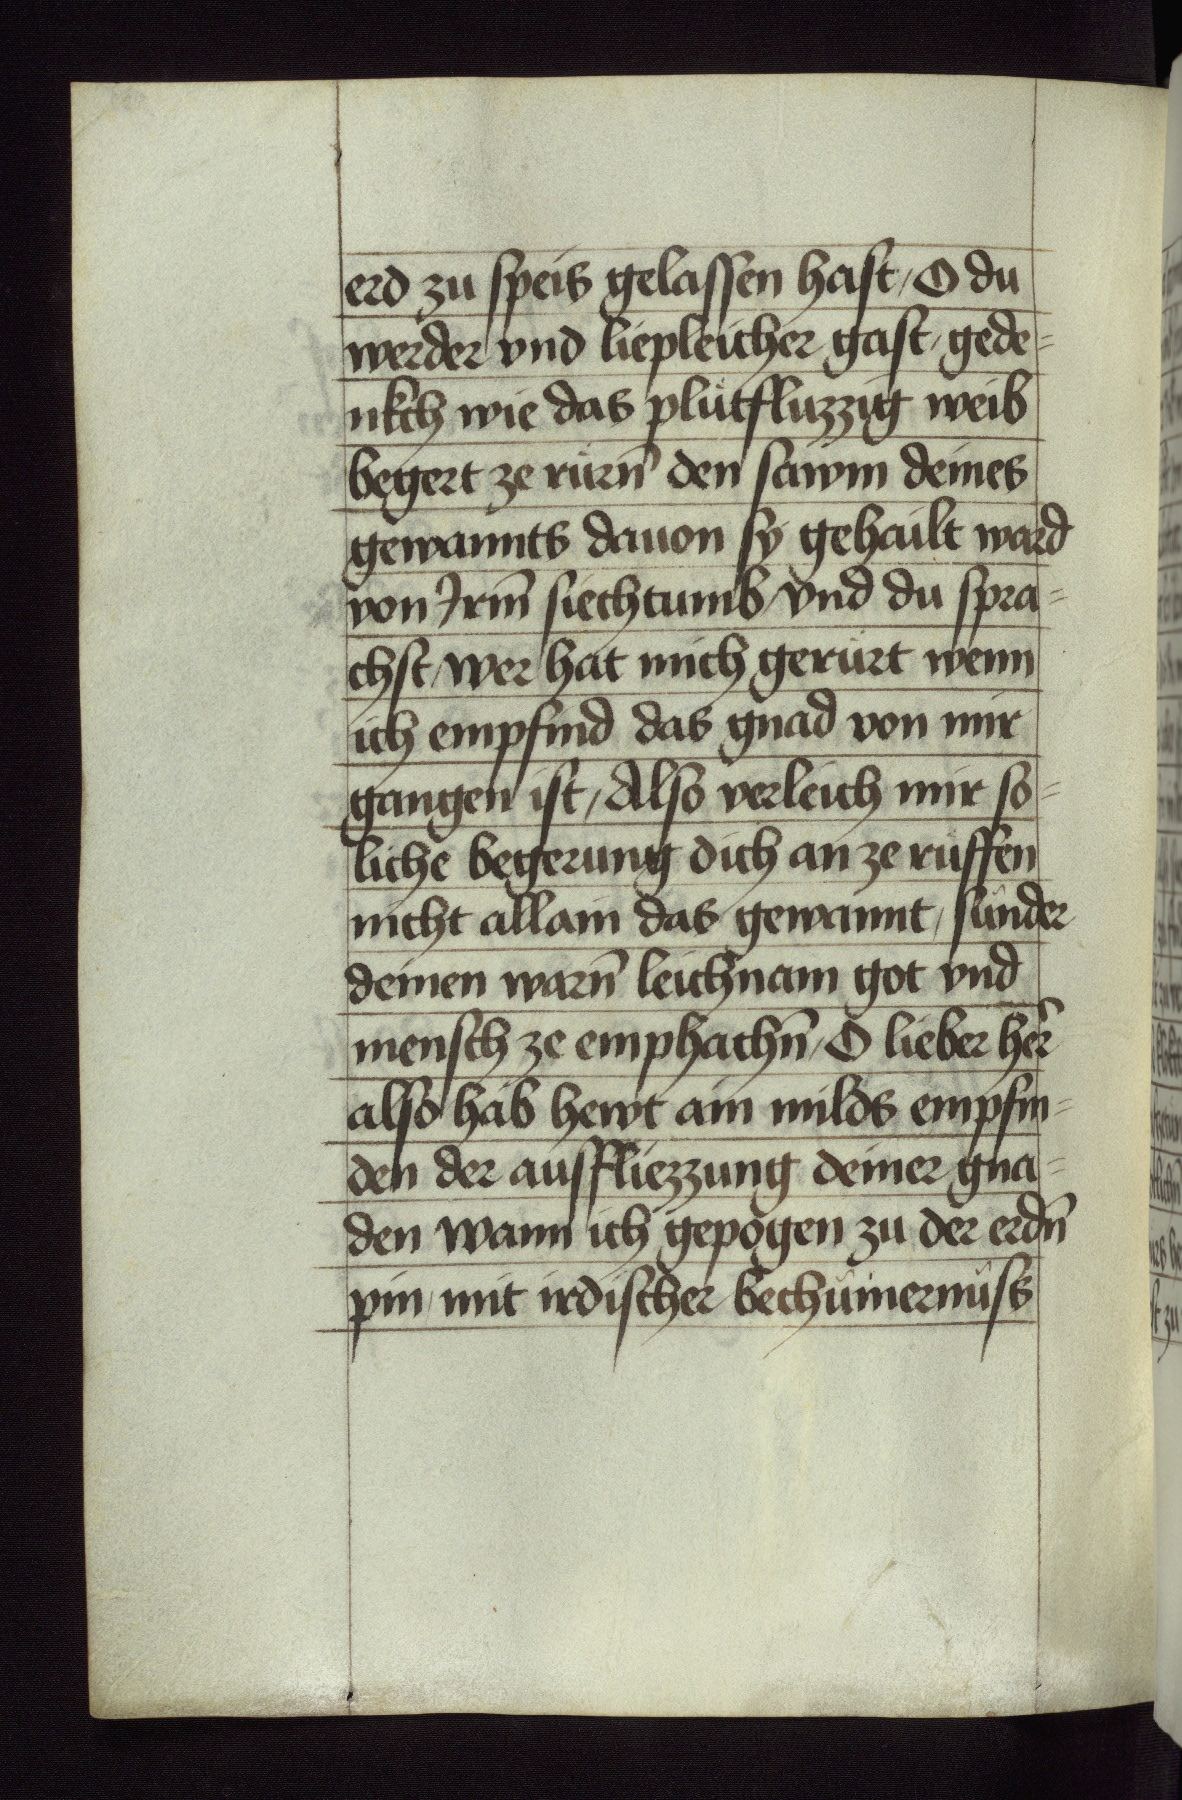 erd zu speis gelassen hast / O du
werder vnd liepleicher gast / gede=
nkch wie das plůtfluzzig weib
begert ze růrn̄ den sawm deines
gewannts dauon sy gehailt ward
von Irm̄ siechtumb / vnd du spra=
chst / wer hat mich gerůrt wenn
ich empfind das gnad von mir
gangen ist / Also verleich mir so=
liche begerung dich an ze růffen
nicht allain das gewannt / sůnder
deinen warn̄ leichnam got vnd
mensch ze emphachn̄ / O lieber her̄
also hab hewt ain milds empfin=
den der ausfliezzung deiner gna=
den wann ich gepogen zu der erdn̄
pin / mit irdischer bechůmernůss